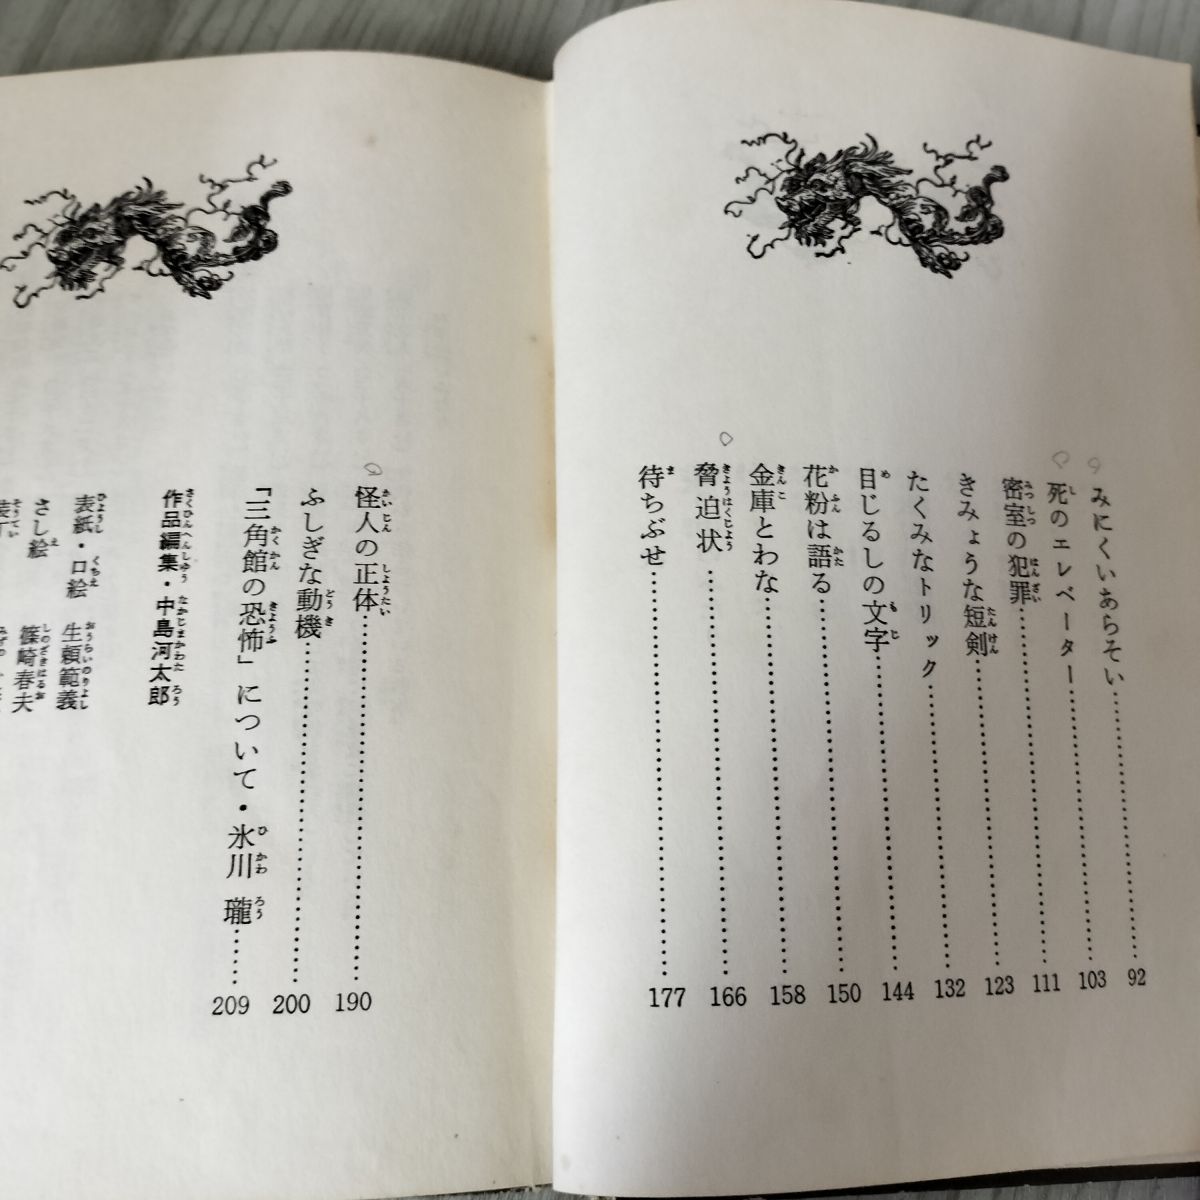 みにくいあらそい……………………92
死のエレベーター……………………103
密室の犯罪……………………111
きみょうな短剣……………………123
たくみなトリック……………………132
目じるしの文字……………………144
花粉は語る……………………150
金庫とわな……………………158
脅迫状……………………166
待ちぶせ……………………177
怪人の正体……………………190
ふしぎな動機……………………200
「三角館の恐怖」について・氷川 瓏……209
作品編集・中島河太郎
表紙・口絵 生頼範義
さし絵 篠崎春夫